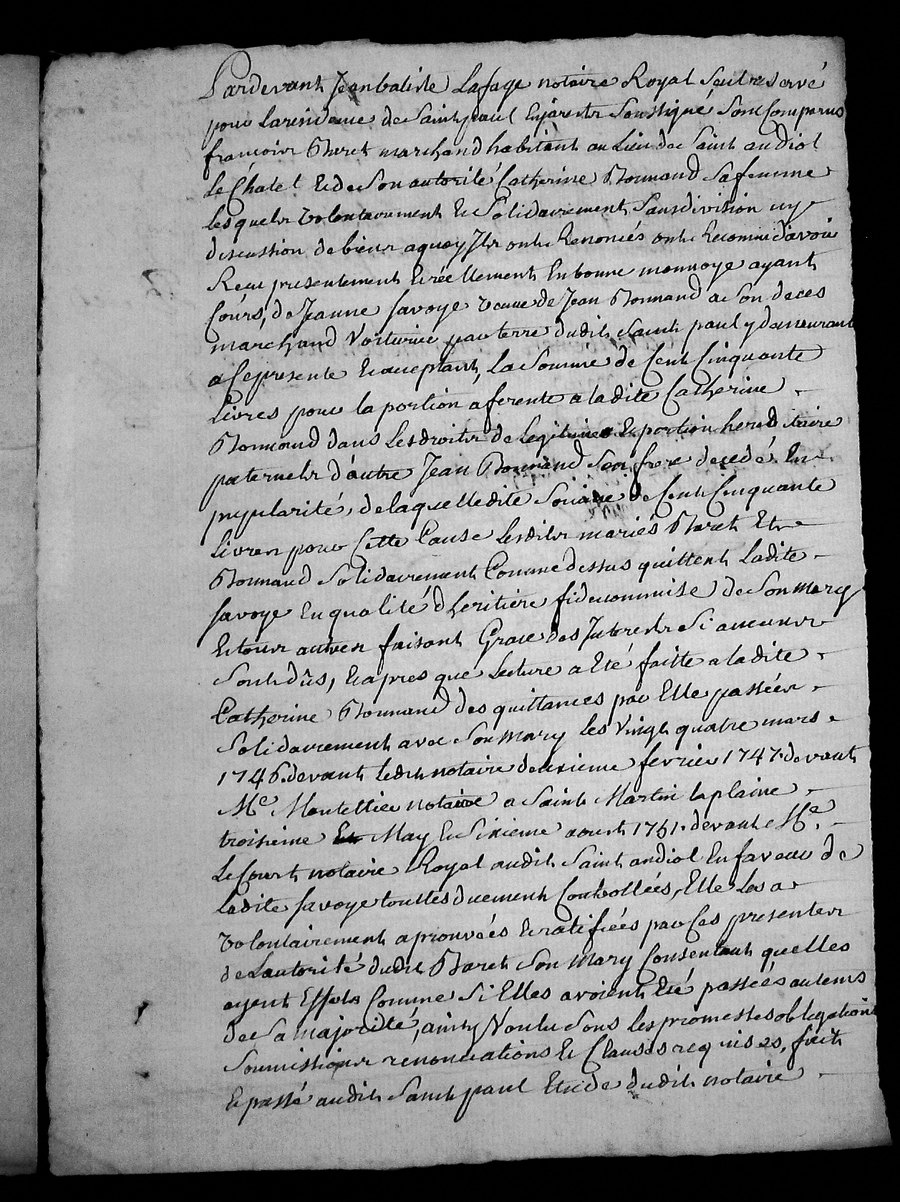 Pardevant Jeanbatiste Lafage notaire Royal Seul reservé
pour Laresidence de Saint paul Enjarestz Soussigné, Sont Comparus
françois Baret marchand habitant au Lieu de Saint andiol
Le Châtel Et de Son autorité Catherine Bonnand Safemme
Lesquels volontairement Et Solidairement Sans division ny
discussion de biens aquoy Ils ont Renonciés ont Reconnu d'avoir
Recu presentement Et réellement En bonne monnoye ayant
Cours, de Jeanne Savoye veuve de Jean Bonnand a Son deces
marchand Voiturier par terre dudit Saint paul y demeurant
a Ce presente Et acceptant, La Somme de Cent Cinquante
Livres pour la portion aferente a ladite Catherine
Bonnand dans Les droits de Legitime Et portion hereditaire
paternels d'autre Jean Bonnand Son frere decedé En
pupularité, de laquelle dite Somme de Cent Cinquante
Livres pour Cette Cause Lesdits mariés Baret Et
Bonnand Solidairement Comme dessus quittent Ladite
Savoye En qualité d'heritière fideicommise de Son mary
Et tous autres faisant Grace des Interests Si aucuns
Sont dûs, Et apres que Lecture a Eté faitte a ladite
Catherine Bonnand des quittances par Elle passées
Solidairement avec Son mary les Vingt quatre mars
1746. devant ledit notaire deuxieme fevrier 1747. devant
Me. Montellier notaire a Saint Martin laplaine
troisieme May Et Sixieme aoust 1751. devant Me.
LeCourt notaire Royal audit Saint andiol En faveur de
Ladite Savoye touttes duement Controllées, Elle Les a
volontairement aprouvées Et ratifiées par Ces presentes
de L'autorité dudit Baret Son mary Consentant quelles
ayent Effets Comme Si Elles avoient Eté passées autems
de Sa majorité, ainsy Voulu Sous les promesses obligations
Soumissions renonciations Et Clauses requises, fait
Et passé audit Saint paul Etude dudit notaire